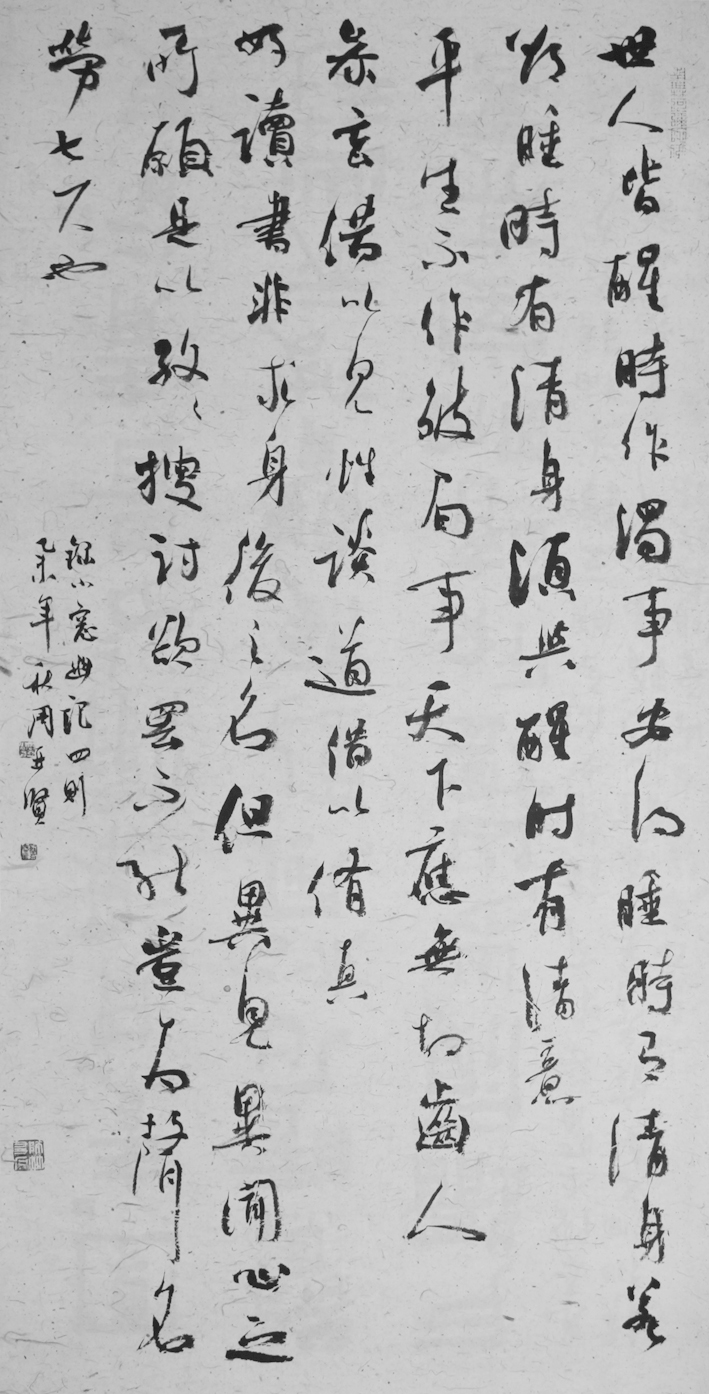 世人皆醒時作濁事安得睡時有清身若
欲睡時有清身須與醒时有清意
平生不作皺眉事天下應無切齒人
參玄借以見性談道借以脩真
好讀書非求身後之名但異見異聞心之
所願是以孜〻搜討欲罷不能豈為聲名
勞七尺也
錄小窓幽記四則
乙未年秋周賢